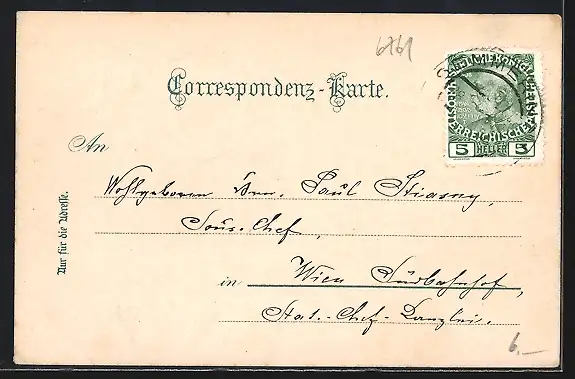 6761
Correspondenz-Karte.
KAISERLICHE KÖNIGLICHE
ÖSTERREICHISCHE POST
5 HELLER 5
An
Wohlgeboren Herrn Paul Stiasny,
Sous-Chef,
in Wien Südbahnhof,
Stat.-Chef-Kanzlei.
Nur für die Adresse.
6,–